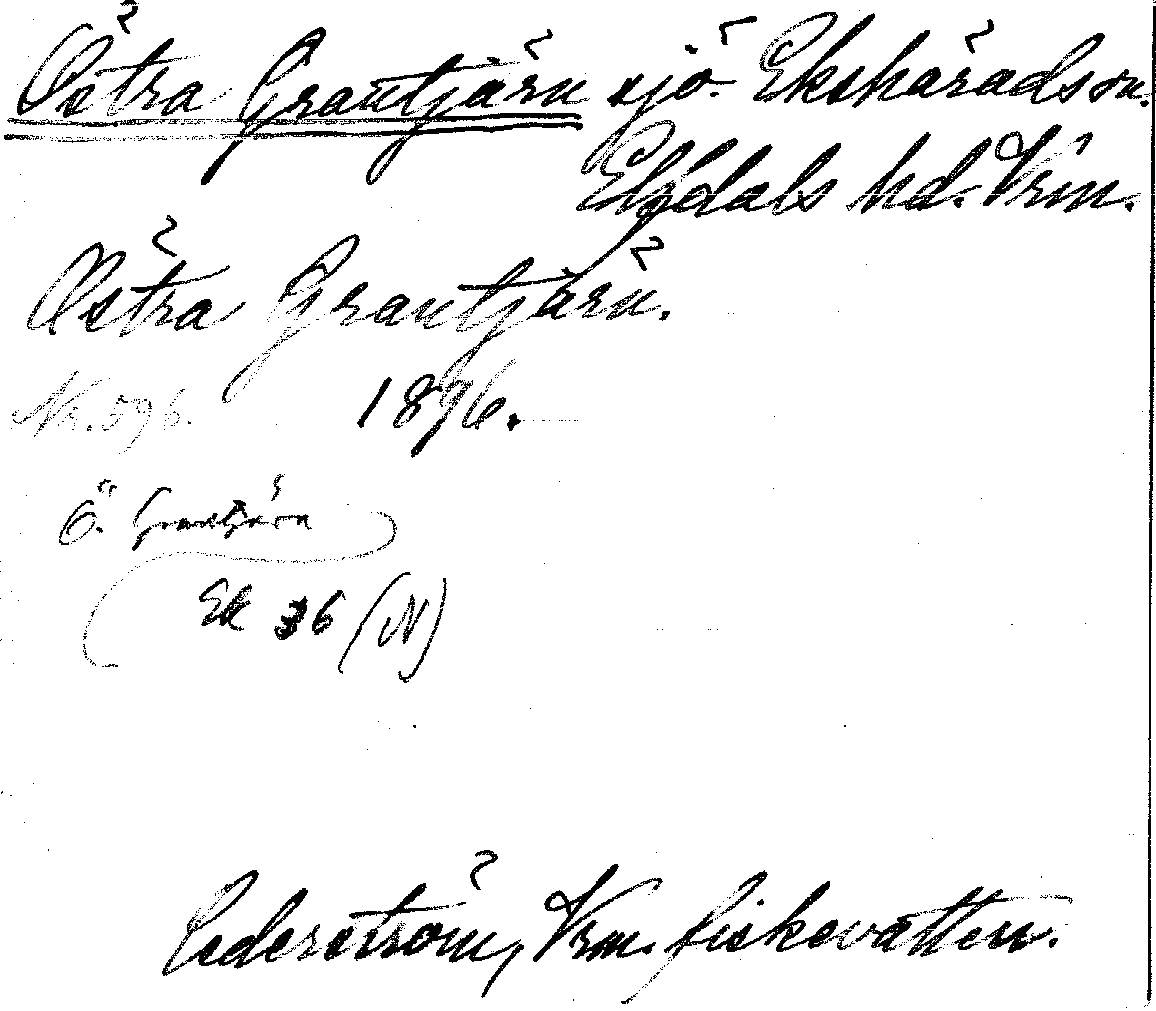 Östra Grantjärn sjö. Ekshärads sn.
Elfdals hd. Vrm.
Östra Grantjärn.
Nr. 596. 1896.
Ö. Grantjärn
Ek 36 (N)
Cederström, Vrm. fiskevatten.